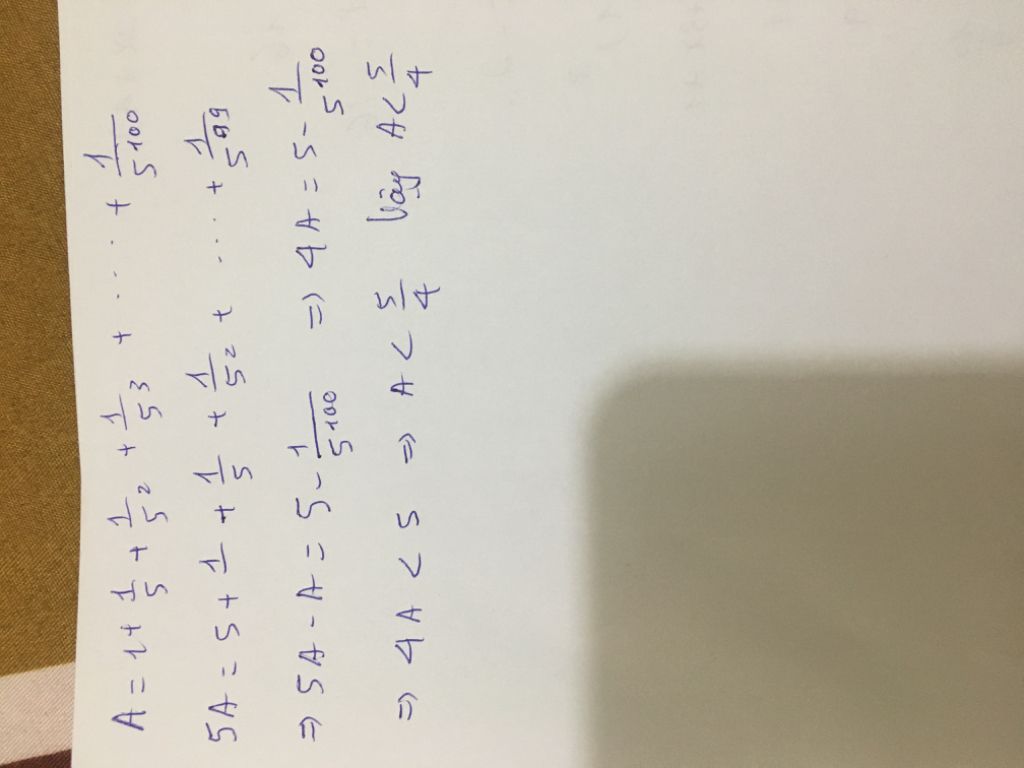 A = 1 + 1/5 + 1/5² + 1/5³ + .... + 1/5¹⁰⁰
5A = 5 + 1 + 1/5 + 1/5² + .... + 1/5⁹⁹
=> 5A - A = 5 - 1/5¹⁰⁰ => 4A = 5 - 1/5¹⁰⁰
=> 4A < 5 => A < 5/4 Vậy A < 5/4